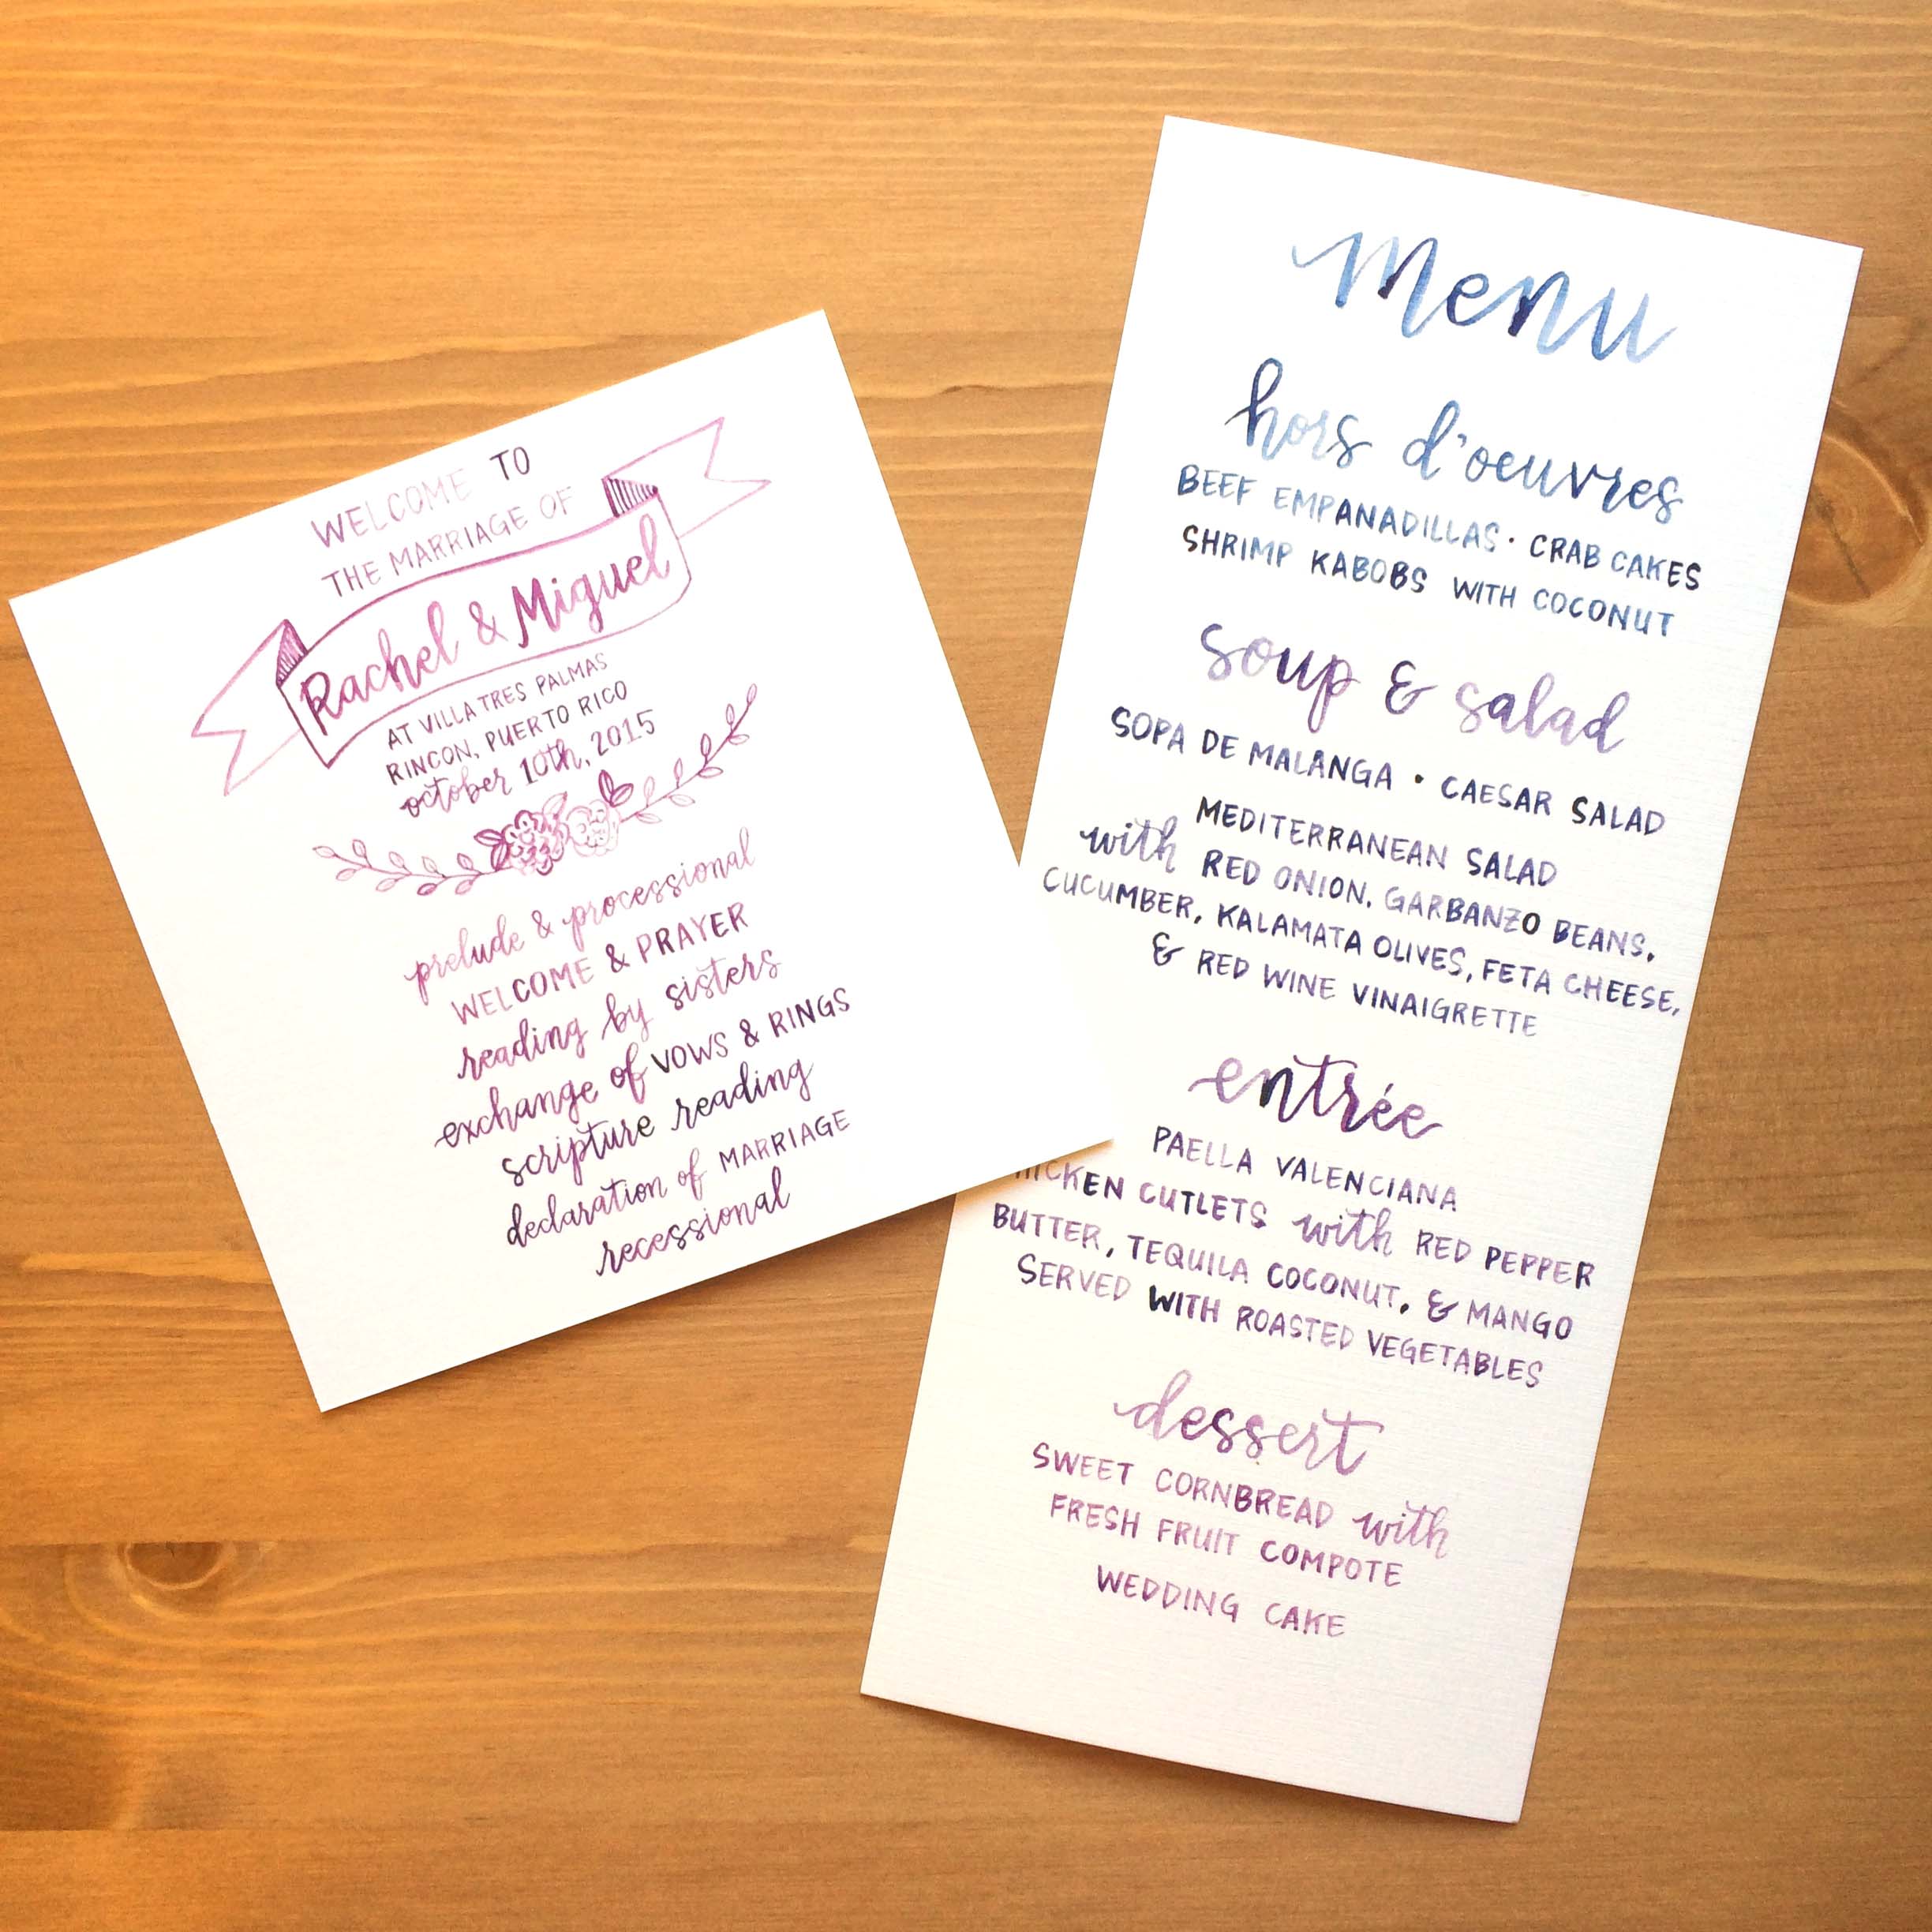 WELCOME TO
THE MARRIAGE OF
Rachel & Miguel
AT VILLA TRES PALMAS
RINCON, PUERTO RICO
october 10th, 2015
prelude & processional
WELCOME & PRAYER
reading by sisters
exchange of VOWS & RINGS
scripture reading
declaration of MARRIAGE
recessional
menu
hors d'oeuvres
BEEF EMPANADILLAS • CRAB CAKES
SHRIMP KABOBS WITH COCONUT
soup & salad
SOPA DE MALANGA • CAESAR SALAD
MEDITERRANEAN SALAD
with RED ONION, GARBANZO BEANS,
CUCUMBER, KALAMATA OLIVES, FETA CHEESE,
& RED WINE VINAIGRETTE
entrée
PAELLA VALENCIANA
HICKEN CUTLETS with RED PEPPER
BUTTER, TEQUILA COCONUT, & MANGO
SERVED WITH ROASTED VEGETABLES
dessert
SWEET CORNBREAD with
FRESH FRUIT COMPOTE
WEDDING CAKE